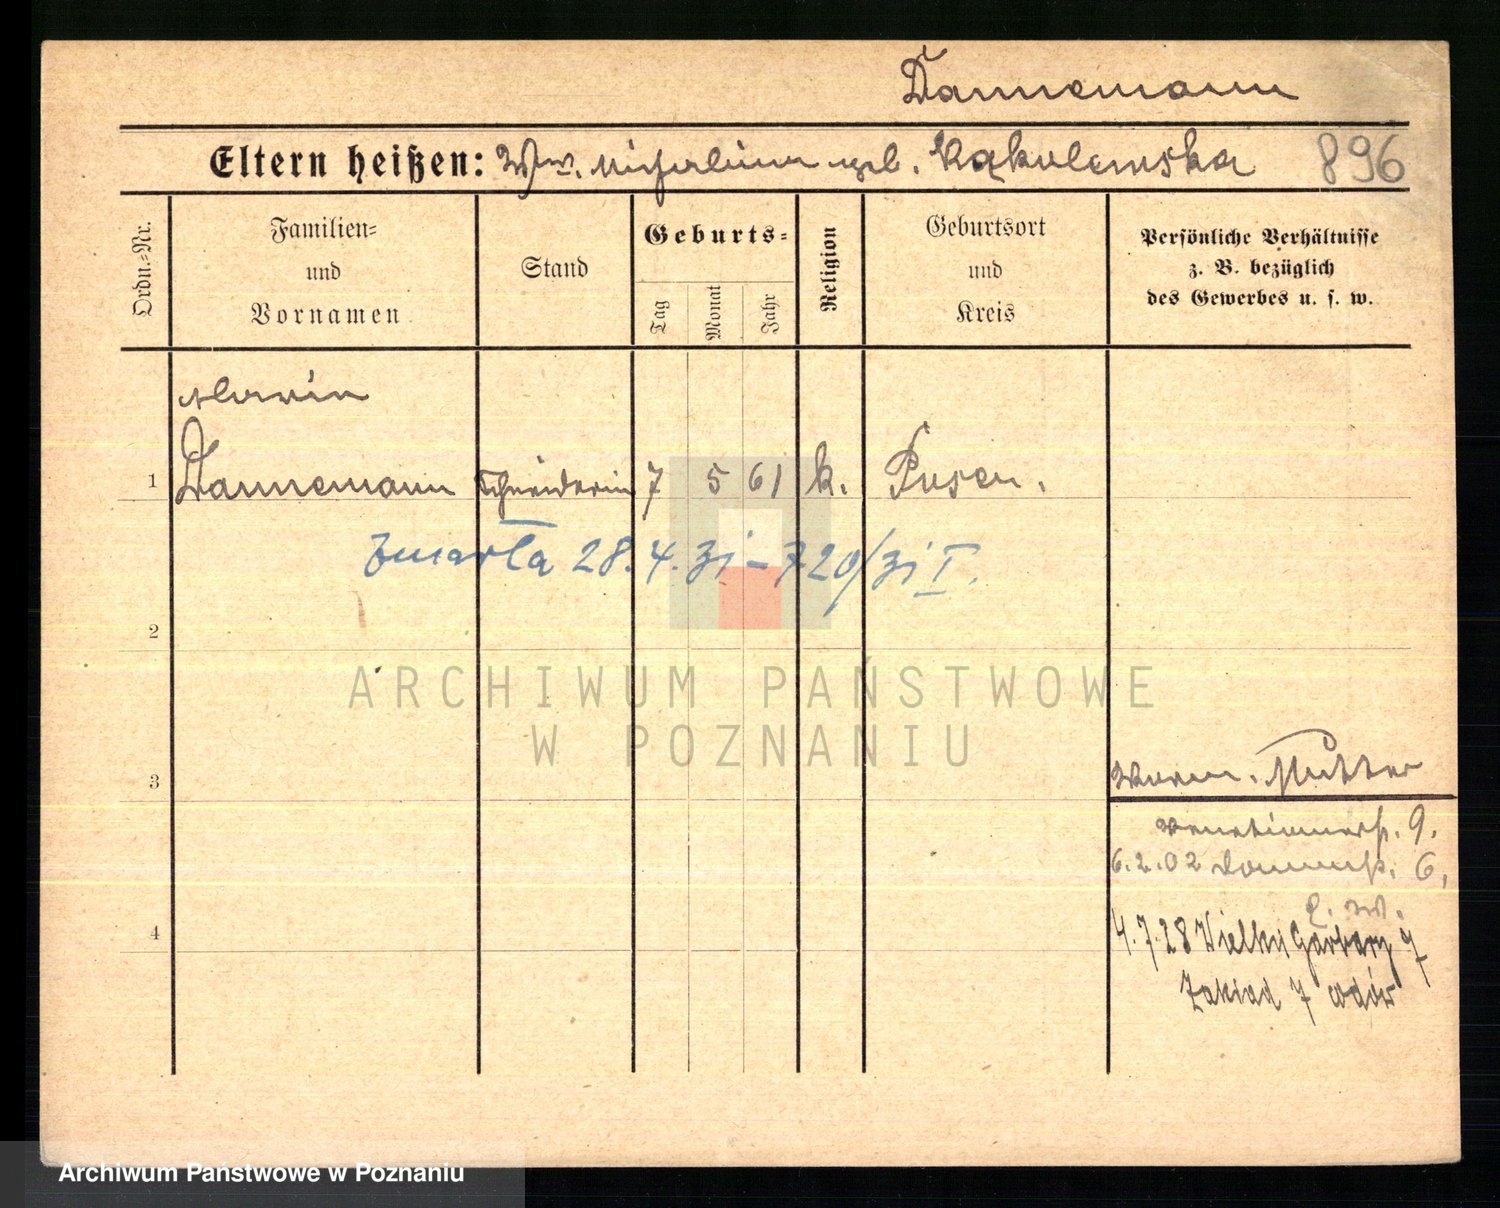 Dannemann
Eltern heißen: Ww. Michalina geb. Kąkolewska 896
Ordn.-Nr.
Familien-
und
Vornamen
Stand
Geburts-
Tag
Monat
Jahr
Religion
Geburtsort
und
Kreis
Persönliche Verhältnisse
z. B. bezüglich
des Gewerbes u. s. w.
Maria
1 Dannemann Schneiderin 7 5 61 k. Posen.
zmarła 28.4.31 - 720/31 I.
2
ARCHIWUM PAŃSTWOWE
W POZNANIU
3
Mutter
Venetianerstr. 9.
6.2.02 Dammstr. 6,
4
4.7.28 Wielkie Garbary 7
Zakład wdów
Archiwum Państwowe w Poznaniu